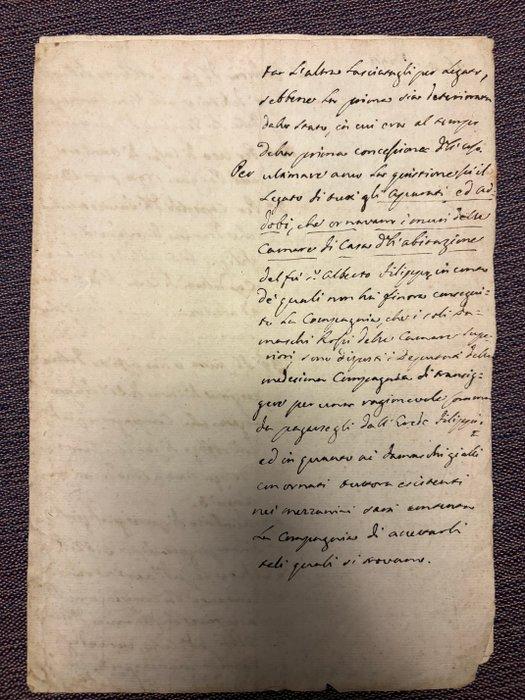 tar l'altra lasciategli per Legato,
sebbene la prima sia deteriorata
dallo stato, in cui era al tempo
della prima concessione d'essa
Per ultimare anco la quistione su il
Legato di tutti gli Apparati ed ad
dobi, che ornavano i muri delle
Camere di Casa d'abitazione
del fu Sr. Alberto Filippi, in conto
de quali non ha finora consegui-
to la Compagnia che i soli Da-
maschi Rossi delle Camere Supe-
riori sono disposti i Deputati della
medesima Compagnia di transig-
gere per una ragionevole somma
da pagarsegli dall'Erede Filippi,
ed in quanto ai damaschi gialli
con ornati tuttora esistenti
nei mezzanini sarà contenta
la Compagnia di accettarli
tali quali si trovano.